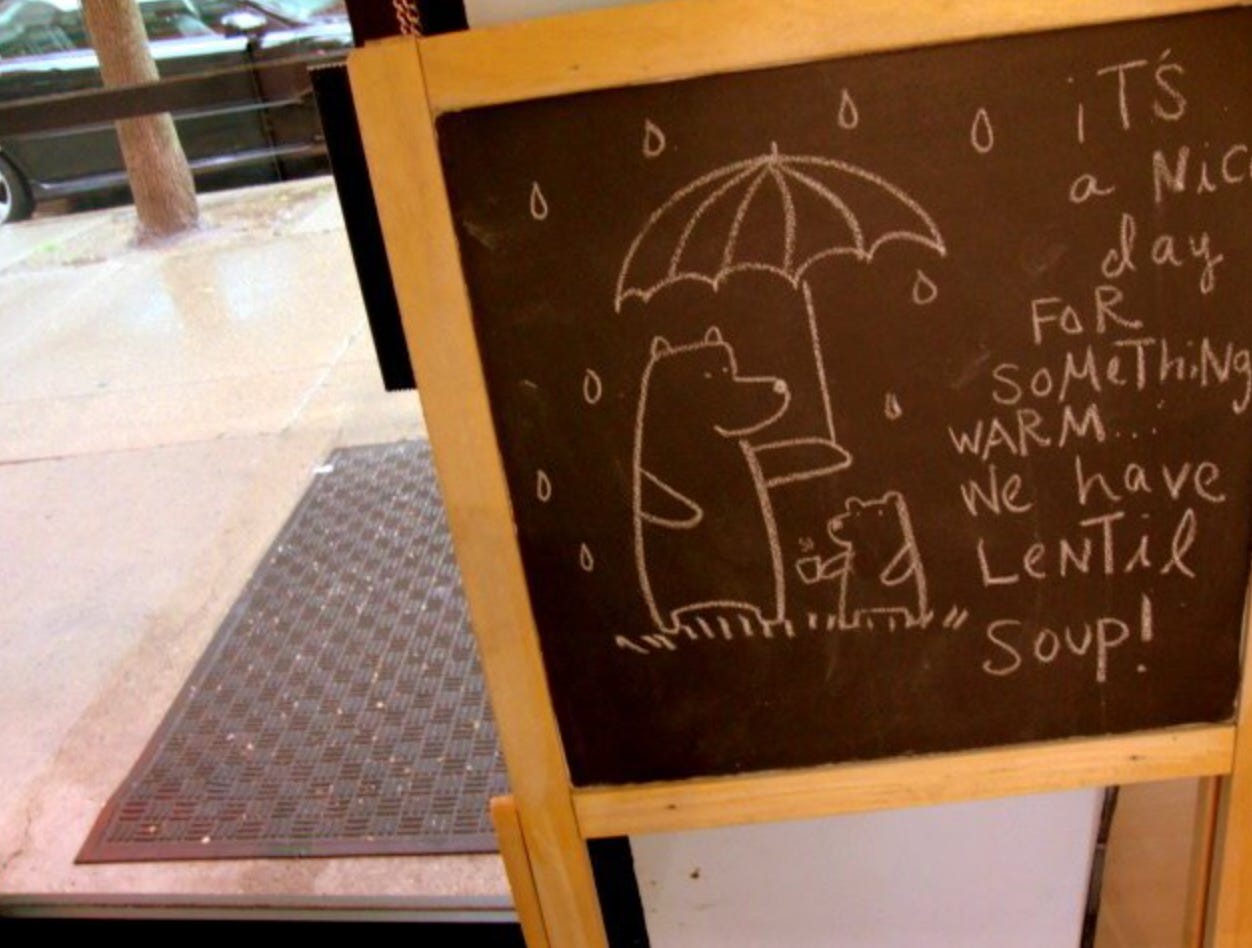 iT'S
a NiC
day
FOR
SOMeThiNg
WARM...
We have
LeNTil
SOUP!